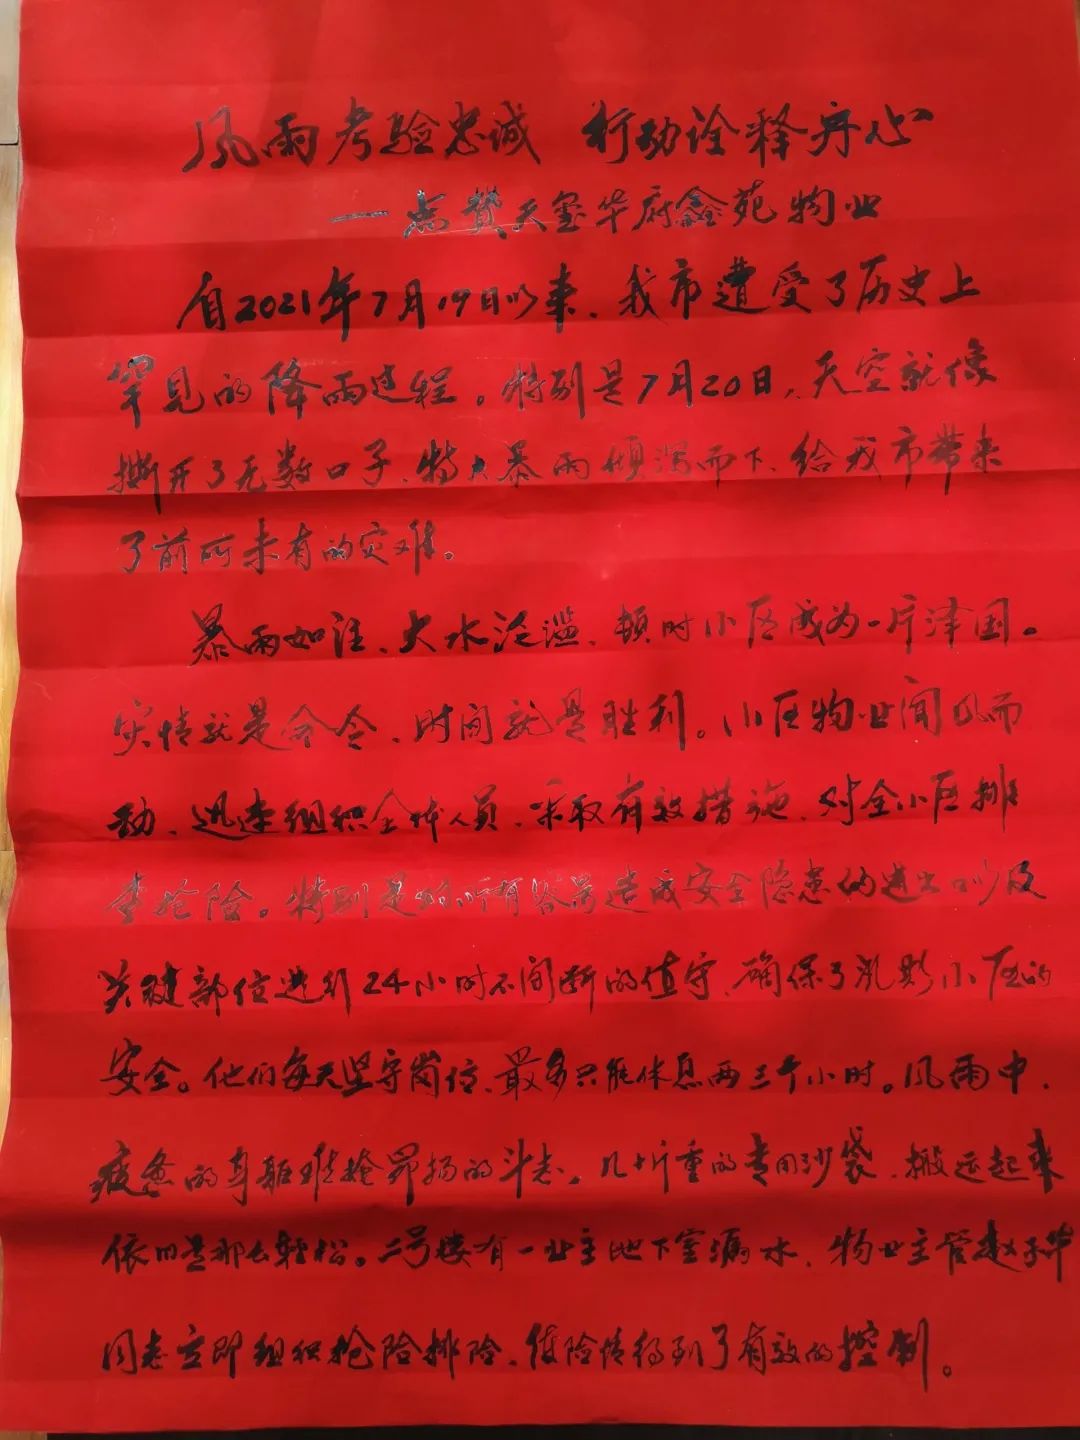 风雨考验忠诚 行动诠释丹心
一点赞天玺华府鑫苑物业
自2021年7月19日以来、我市遭受了历史上
罕见的降雨过程。特别是7月20日,天空就像
撕开了无数口子、特大暴雨倾泻而下、给我市带来
了前所未有的灾难。
暴雨如注、大水泛滥、顿时小区成为一片泽国。
灾情就是命令、时间就是胜利。小区物业闻风而
动、迅速组织全体人员、采取有效措施、对全小区排
查抢险。特别是对所有容易造成安全隐患的进出口以及
关键部位进行24小时不间断的值守、确保了汛期小区的
安全。他们每天坚守岗位、最多只能休息两三个小时。风雨中、
疲惫的身躯难掩昂扬的斗志。几十斤重的专用沙袋、搬运起来
依旧是那么轻松。二号楼有一业主地下室漏水、物业主管赵子华
同志立即组织抢险排险、使险情得到了有效的控制。